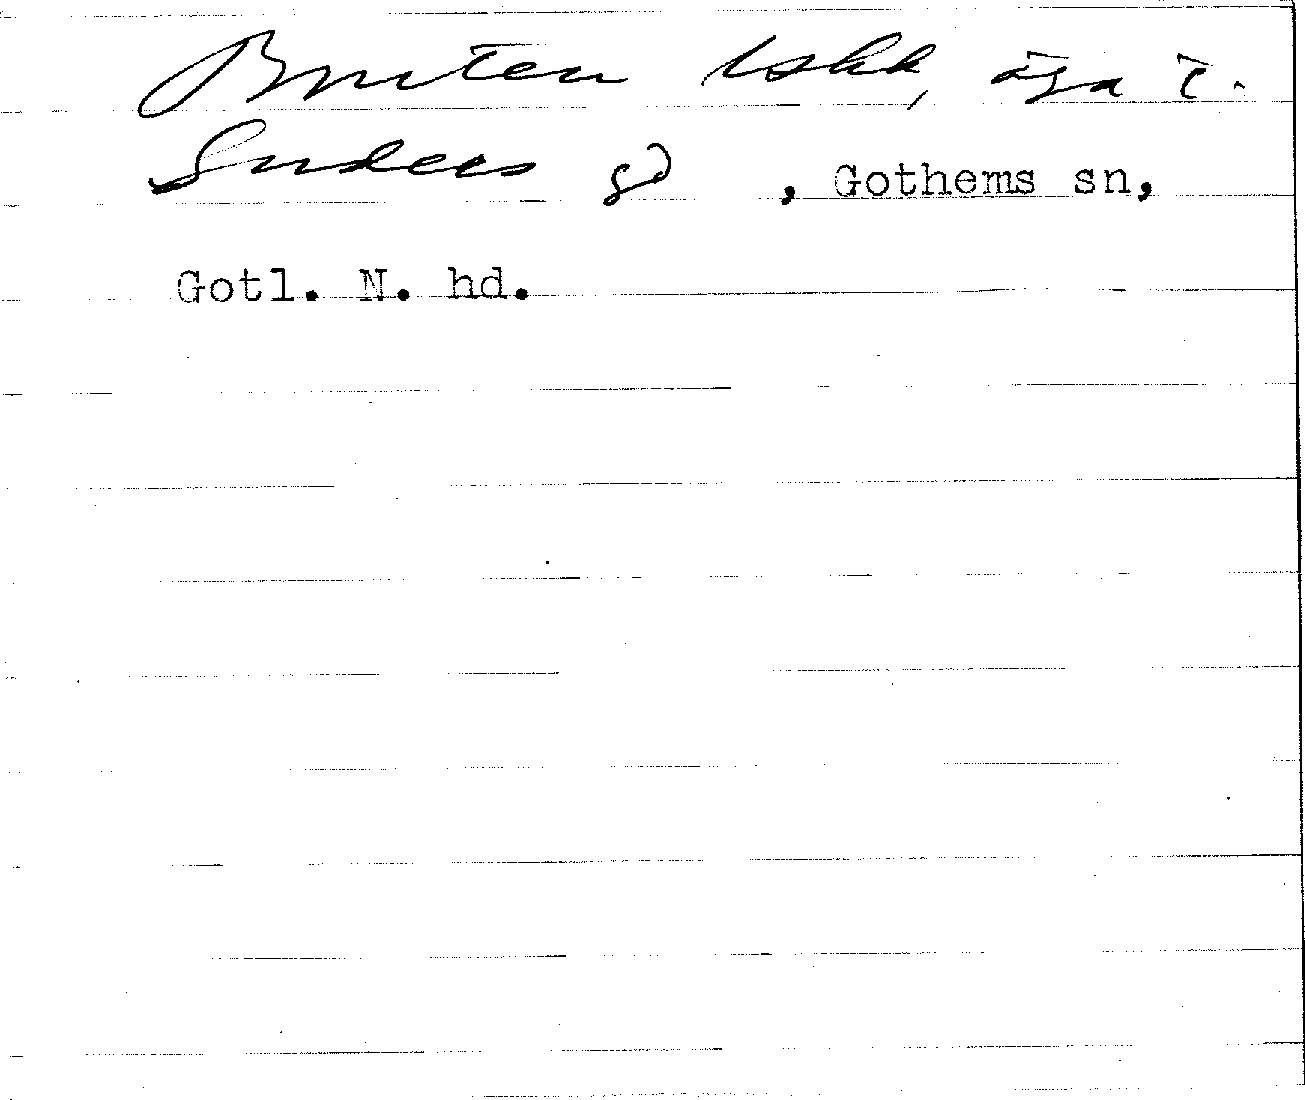 Bruten äga t.
Suders gd , Gothems sn,
Gotl. N. hd.